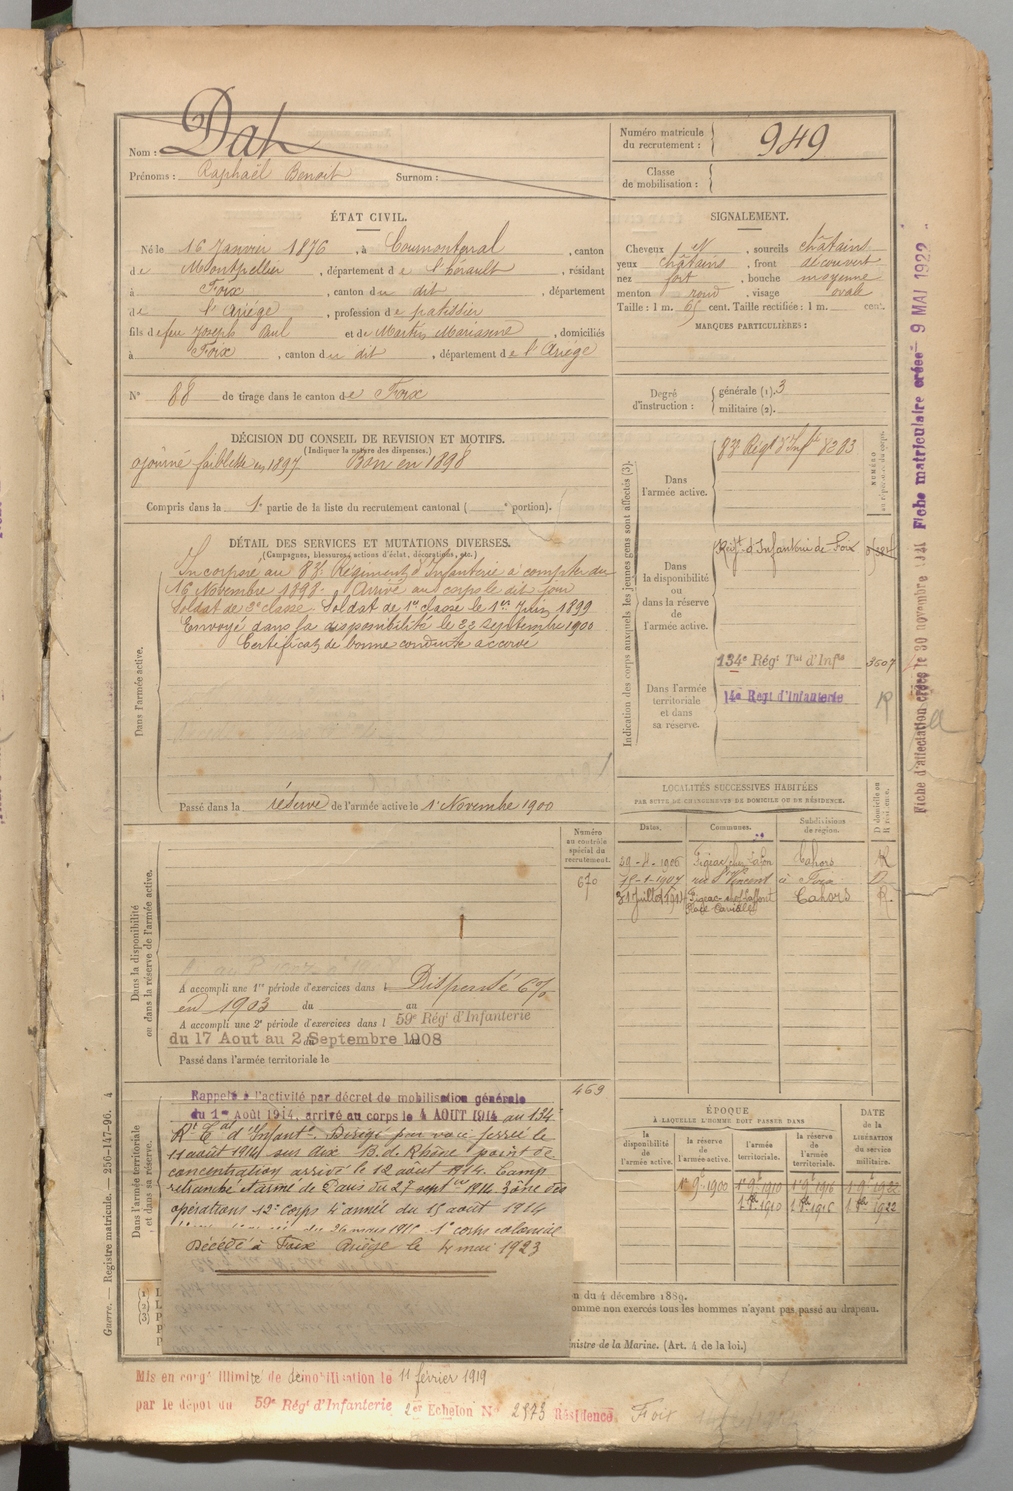 Nom : Dat
Prénoms : Raphaël Benoit Surnom :
Numéro matricule
du recrutement : 949
Classe
de mobilisation :
ÉTAT CIVIL.
Né le 16 Janvier 1876, à Cournonterral, canton
de Montpellier, département de l'hérault, résidant
à Foix, canton du dit, département
de l'Ariège, profession de patissier
fils de feu Joseph Paul et de Martin Marianne, domiciliés
à Foix, canton du dit, département de l'Ariège
N° 88 de tirage dans le canton de Foix
SIGNALEMENT.
Cheveux N, sourcils châtains
yeux châtains, front découvert
nez fort, bouche moyenne
menton rond, visage ovale
Taille : 1 m. 65 cent. Taille rectifiée : 1 m. cent.
MARQUES PARTICULIÈRES :
Degré
d'instruction :
générale (1). 3
militaire (2).
DÉCISION DU CONSEIL DE REVISION ET MOTIFS.
(Indiquer la nature des dispenses.)
ajourné faiblesse en 1897 Bon en 1898
Compris dans la 1e partie de la liste du recrutement cantonal ( e portion).
DÉTAIL DES SERVICES ET MUTATIONS DIVERSES.
(Campagnes, blessures, actions d'éclat, décorations, etc.)
Dans l'armée active.
Incorporé au 83e Régiment d'Infanterie à compter du
16 Novembre 1898. Arrivé au corps le dit jour
Soldat de 2e classe. Soldat de 1re classe le 1er Juin 1899
Envoyé dans la disponibilité le 22 septembre 1900
Certificat de bonne conduite accordé
Passé dans la réserve de l'armée active le 1er Novembre 1900
Indication des corps auxquels les jeunes gens sont affectés (3).
NUMÉRO
Dans
l'armée active.
83e Régt d'Infie 8283
Dans
la disponibilité
ou
dans la réserve
de
l'armée active.
Régt d'Infanterie de Foix
Dans l'armée
territoriale
et dans
sa réserve.
134e Régt Tal d'Infie 3607
14e Regt d'Infanterie R
LOCALITÉS SUCCESSIVES HABITÉES
PAR SUITE DE CHANGEMENTS DE DOMICILE OU DE RÉSIDENCE.
Dates. Communes. Subdivisions
de région. D domicile ou
R résidence.
29-4-1906 Figeac chez Lafon Cahors R
15-1-1907 rue St Vincent à Foix D
31 Juillet 1911 Figeac chez Laffont Cahors R.
Place
Dans la disponibilité
ou dans la réserve de l'armée active.
Numéro
au contrôle
spécial du
recrutement.
670
A accompli une 1re période d'exercices dans l Dispensé 6%
en 1903 du au
A accompli une 2e période d'exercices dans l 59e Régt d'Infanterie
du 17 Aout au 2 Septembre 1908
Passé dans l'armée territoriale le
Dans l'armée territoriale
et dans sa réserve.
469
Rappelé à l'activité par décret de mobilisation générale
du 1er Août 1914, arrivé au corps le 4 AOUT 1914 au 134e
Rt Tal d'Infantie. Dirigé par voie ferrée le
11 août 1914 sur Aix B. d. Rhône point de
concentration arrivé le 12 août 1914. Camp
retranché et armé de Paris du 27 septbre 1914 Zône des
opérations 12e Corps 4e armée du 15 août 1914
du 26 mars 1915 1er corps colonial
Décédé à Foix Ariège le 4 mai 1923
ÉPOQUE
À LAQUELLE L'HOMME DOIT PASSER DANS
DATE
de la
LIBÉRATION
du service
militaire.
la
disponibilité
de
l'armée active.
la réserve
de
l'armée active.
l'armée
territoriale.
la réserve
de
l'armée
territoriale.
1er 9bre 1900 1er 9bre 1910 1er 9bre 1916 1er 9bre 1922
1er 8bre 1910 1er 8bre 1916 1er 8bre 1922
n du 4 décembre 1889.
omme non exercés tous les hommes n'ayant pas passé au drapeau.
nistre de la Marine. (Art. 4 de la loi.)
Mis en congé illimité de démobilisation le 11 février 1919
par le dépôt du 59e Régt d'Infanterie 2er Echelon N° 2873 Résidence, Foix
Guerre. — Registre matricule. — 256-147-96. 4
Fiche d'affectation créée le 30 novembre 1911 Fiche matriculaire créée 9 MAI 1922